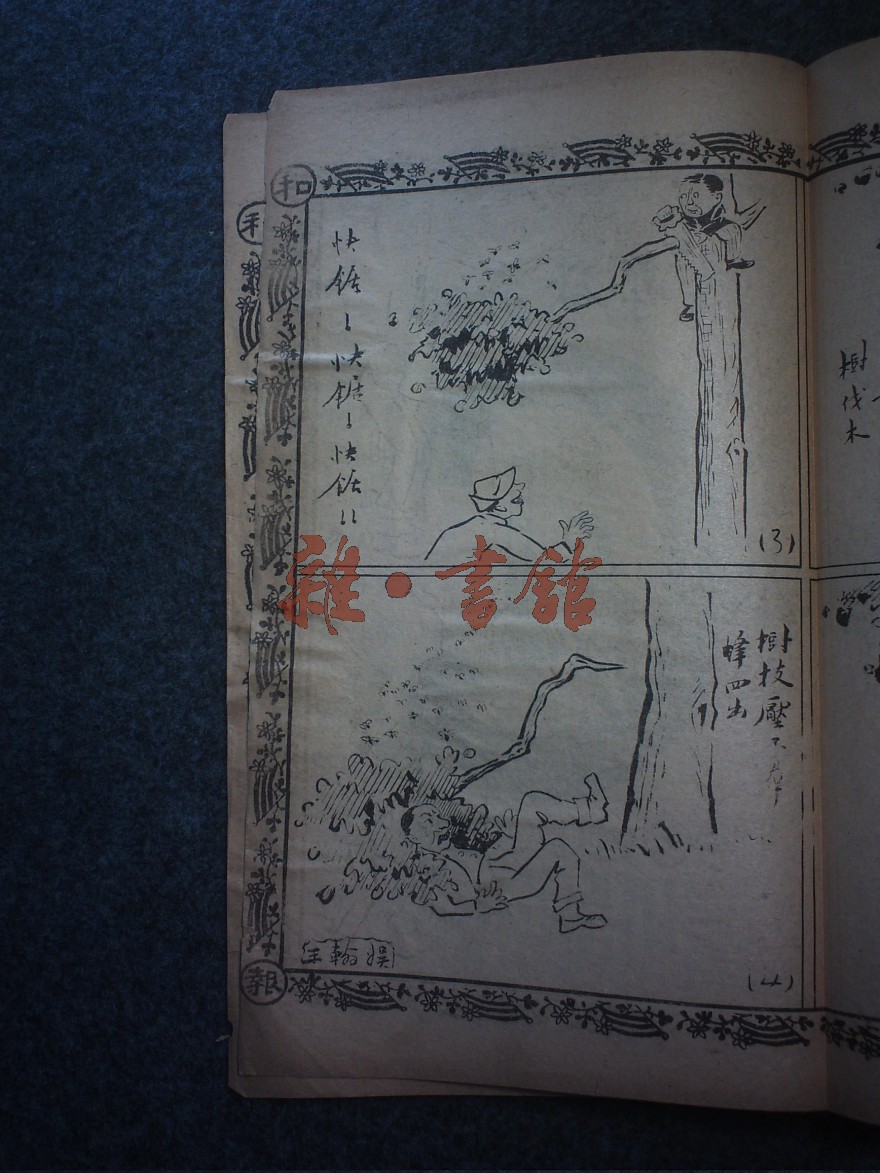 和
快鋸!快鋸!快鋸!!
(3)
雜·書館
樹枝壓下羣
蜂四出
(4)
報
樹伐木